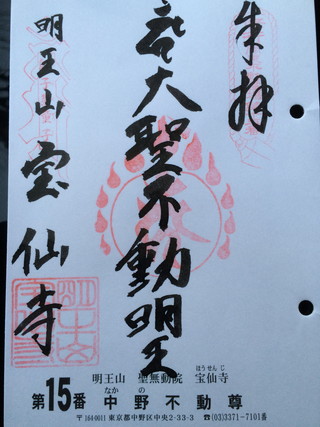 奉拝
大聖不動明王
明王山 宝仙寺
明王山 聖無動院 宝仙寺
ほうせんじ
なか の
第15番 中野不動尊
〒164-0011 東京都中野区中央2-33-3 ☎(03)3371-7101番